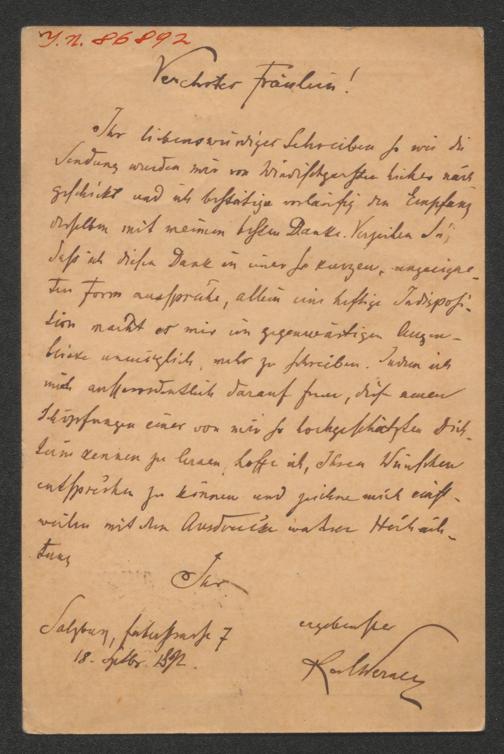 J.N. 86892
Verehrtes Fräulein!
Ihr liebenswürdiges Schreiben so wie die
Sendung wurden mir von Windischgarsten hieher nach-
geschickt und ich bestätige vorläufig den Empfang
derselben mit meinem besten Danke. Verzeihen Sie,
daß ich diesen Dank in einer so kurzen, ungeeigne-
ten Form ausspreche, allein eine heftige Indisposi-
tion macht es mir im gegenwärtigen Augen-
blicke unmöglich, mehr zu schreiben. Indem ich
mich außerordentlich darauf freue, diese neuen
Schöpfungen einer von mir so hochgeschätzten Dich-
terin kennen zu lernen, hoffe ich, Ihren Wünschen
entsprechen zu können und zeichne mich einst-
weilen mit dem Ausdrucke wahrer Hochach-
tung
Ihr
ergebenster
Salzburg, 7
18. Septbr. 1892.
Karl Werner